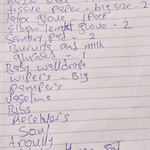 Tissue paper - big size - 2
latex glove - 1 Pack
Elbow lenght glove - 2
Sanitary pad - 2
Burvita and milk
glucose - 1
Baby walldrope
wipers - Big
pampers
vaseline
Bibs
Receivers
Soul
Trously